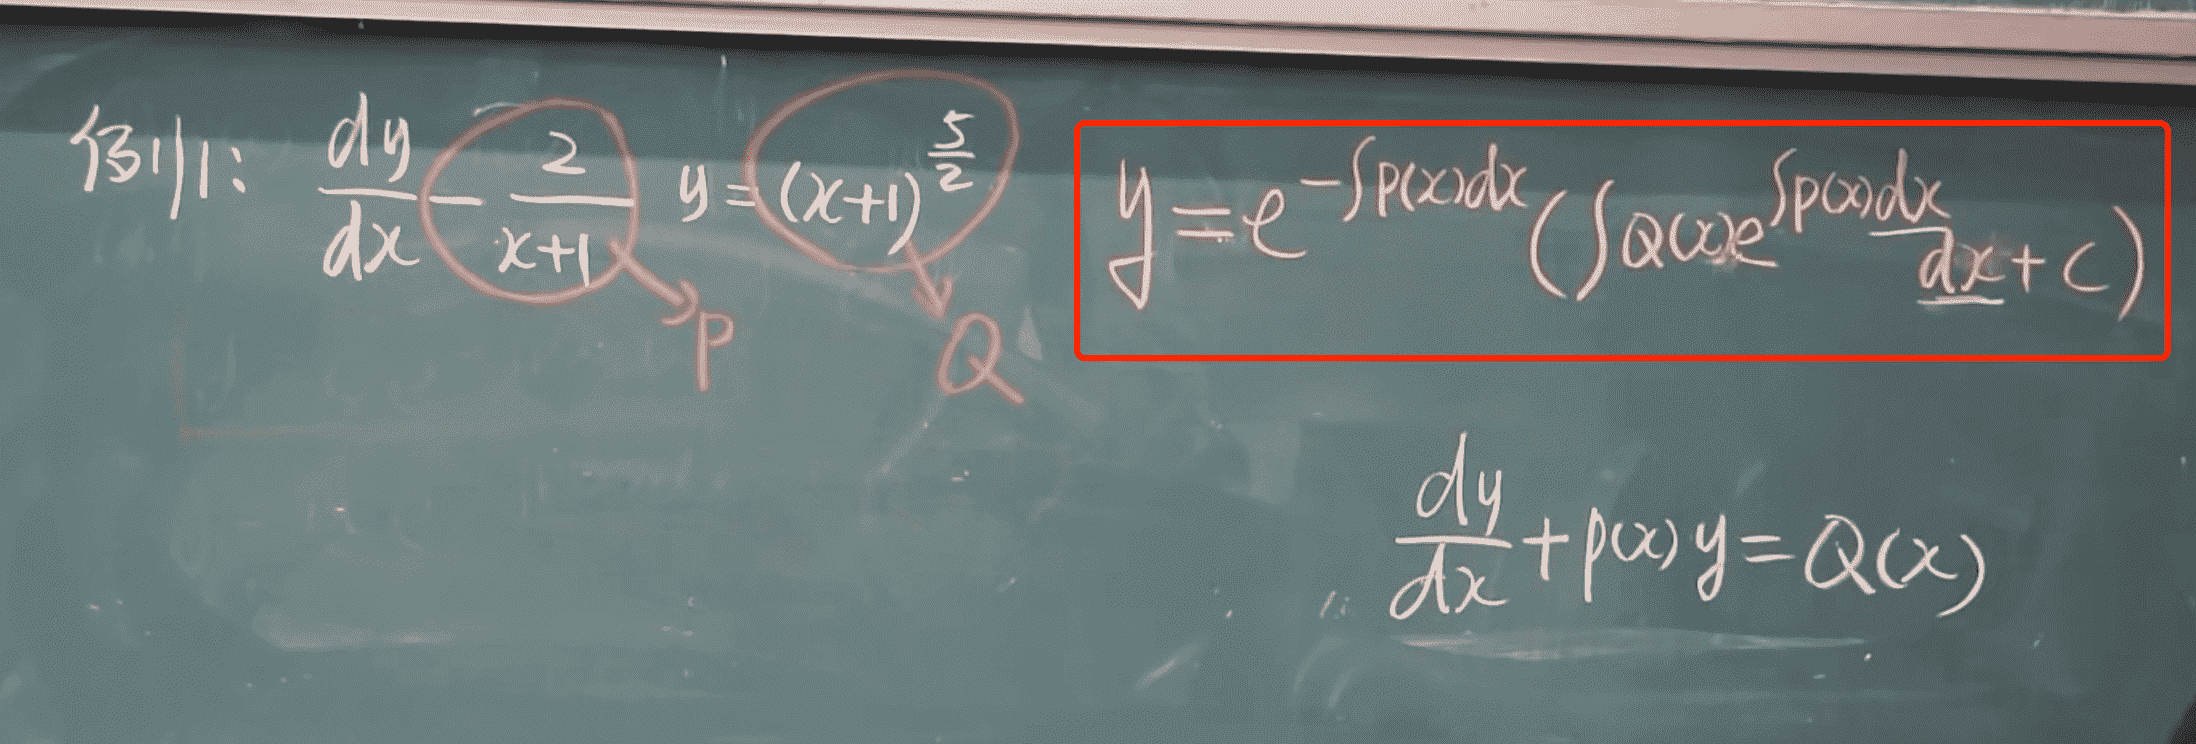 例1: dy/dx - 2/(x+1) y = (x+1)^(5/2)
P
Q
y = e^(-∫P(x)dx) (∫Q(x)e^(∫P(x)dx) dx + C)
dy/dx + P(x)y = Q(x)